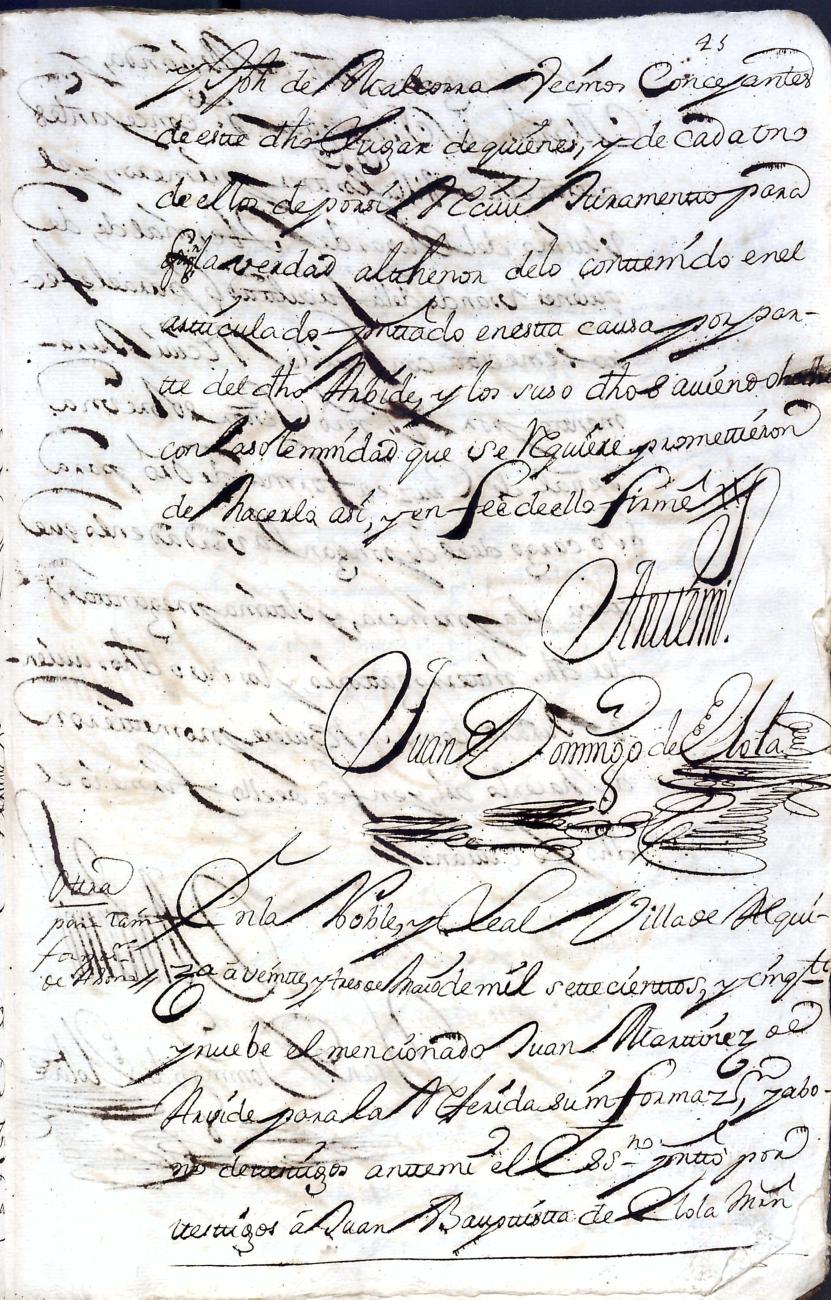 45
y Jph de Alcorra Vecinos Concejantes
de este dho Lugar de quienes, y de cada vno
de ellos de porsi Reciui Juramento para
q̃ la verdad al thenor delo conttenido en el
artticulado pnttado en estta causa por par-
tte del dho Arbide, y los suso dhos auiendo hecho
con la solemnidad que se Requiere promettieron
de hacerlo asi, y en feè de ello firmè
Anttemi.
Juan Domingo de Elola
Ottra
para
de Abono
En la Noble, y Leal Villa de Alqui-
za à veintte, y tres de Maio de mil settecienttos, y cinqta
y nuebe el mencionado Juan Marttinez de
Arbide para la Referida su informazn, y abo-
no de testtigos anttemi el Essno pnttò por
testtigos à Juan Bauptistta de Elola Min